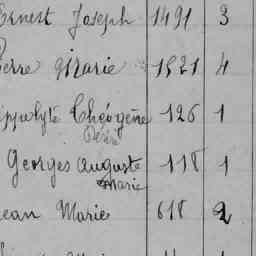 Ernest Joseph 1491 3
Pierre Marie 1521 4
ippolyte Théogène 126 1
Désiré
Georges Auguste 118 1
Marie
ean Marie 618 2